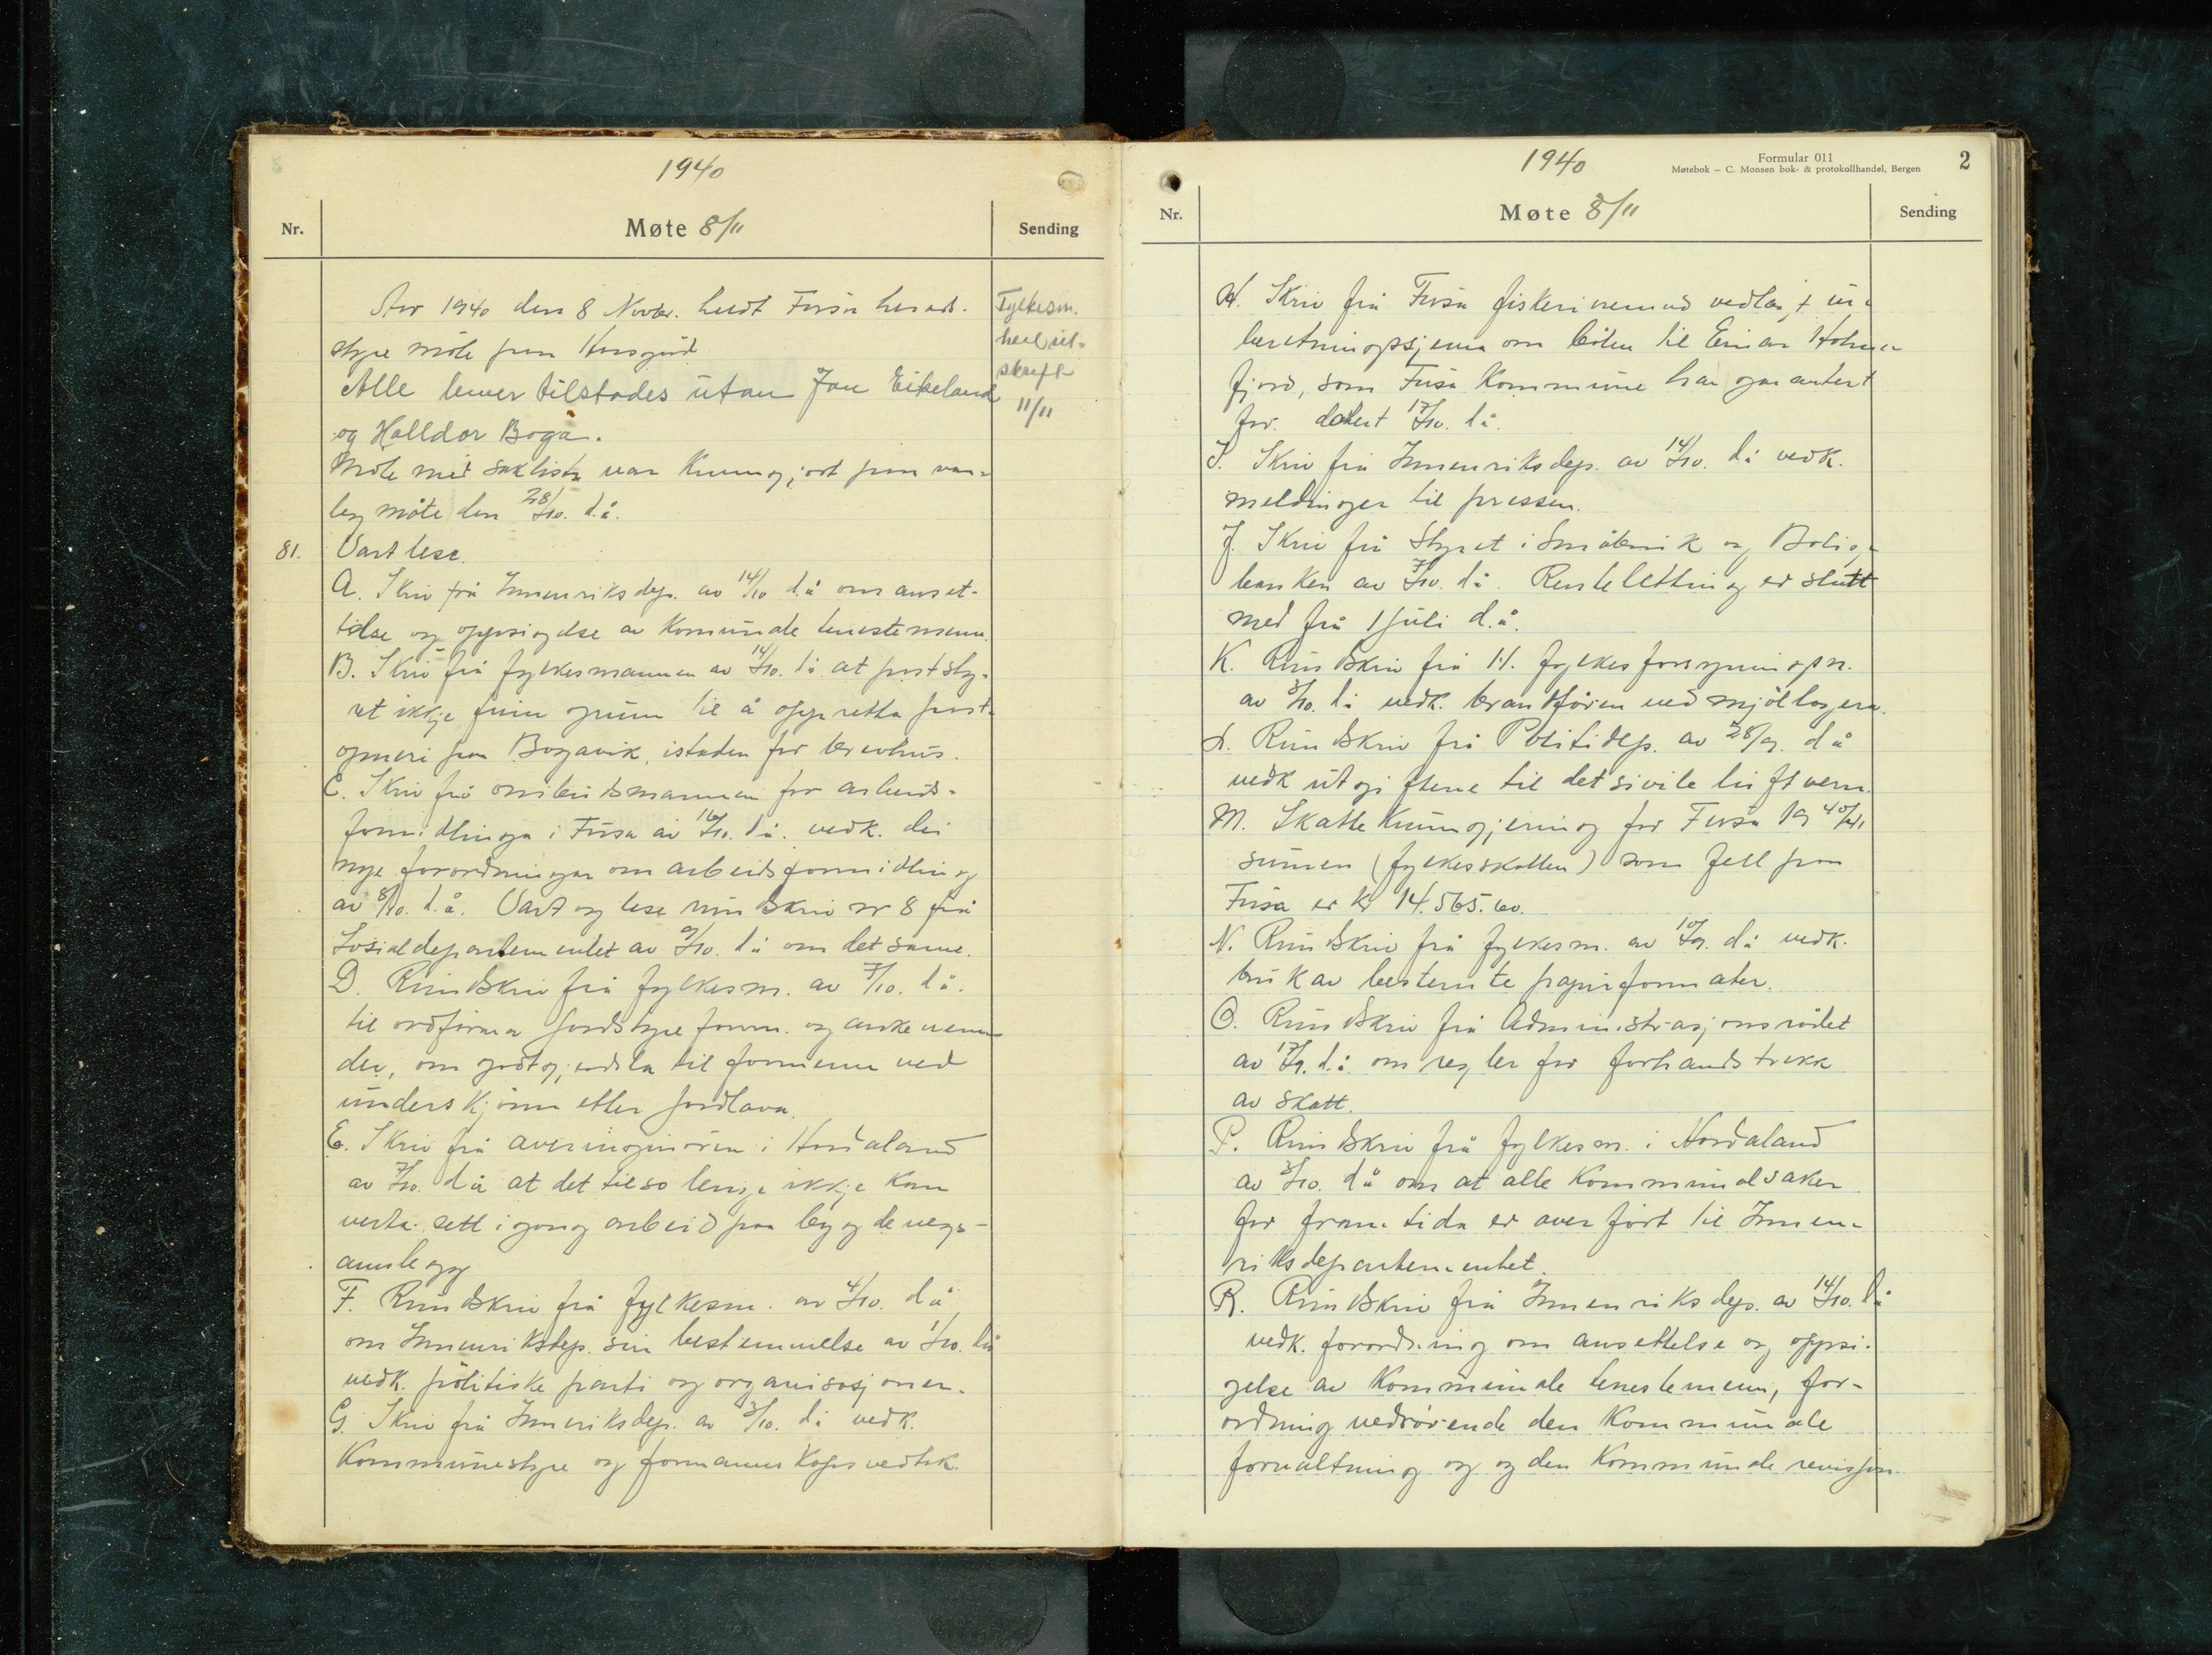 1940
Nr.
Møte 8/11
Sending
Aar 1940 den 8 Novbr. heldt Fusa herads-
styre møte paa Havsgård
Alle lemer tilstades utan Jon Eikeland
og Halldor Boga.
Møte med sakliste var kunngjort paa van-
leg måte den 28/10. d.å.
Fylkesm.
heil ut-
skrift
11/11
81. Vart lese.
A. Skriv frå Innenriksdep. av 14/10 d.å om anset-
telse og oppsigelse av komunale tenestemenn.
B. Skriv frå fylkesmannen av 14/10. d.å at poststy-
ret ikkje finn grunn til å oppretta post-
opneri paa Bogavik, istaden for brevhus.
C. Skriv frå ombudsmannen for arbeids-
formidlinga i Fusa av 16/10. d.å. vedk. dei
nye forordningar om arbeidsformidling
av 8/10. d.å. Vart og lese rundskriv nr 8 frå
Sosialdepartementet av 9/10. d.å om det same.
D. Rundskriv frå fylkesm. av 7/10. d.å.
til ordførar Jordstyre form. og ankenemn
der, om godtgjerdsla til formenn ved
underskjønn etter jordlova.
E. Skriv frå overingeniøren i Hordaland
av 7/10. d.å at det til so lenge ikkje kan
verta sett i gong arbeid paa bygdevegs-
anlegg
F. Rundskriv frå fylkesm. av 4/10. d.å
om Innenriksdep. sin bestemmelse av 1/10. d.å
vedk. politiske parti og organisasjoner.
G. Skriv frå Inneriksdep. av 3/10. d.å vedk.
Kommunestyre og formannskapsvedtek.
1940
Formular 011
Møtebok – C. Monsen bok- & protokollhandel, Bergen
2
Nr.
Møte 8/11
Sending
H. Skriv frå Fusa fiskerinemnd vedlagt inn-
beretningsskjema om båten til Einar Holme-
fjord, som Fusa Kommune har garantert
for. datert 17/10. d.å.
I. Skriv frå Innenriksdep. av 14/10. d.å vedk.
meldinger til pressen.
J. Skriv frå Styret i Småbruk og Bolig-
banken av 7/10. d.å. Rentelettning er slutt
med frå 1 Juli d.å.
K. Rundskriv frå H. fylkesforsyningsn.
av 3/10. d.å vedk. brandfåren ved mjøllagera.
L. Rundskriv frå Politidep. av 28/9. d å
vedk utgiftene til det sivile luftvern.
M. Skattekunngjering for Fusa 1940/41,
sumen (fylkesskatten) som fell paa
Fusa er kr 14.565.60.
N. Rundskriv frå fylkesm. av 10/9. d.å vedk.
bruk av bestemte papirformater.
O. Rundskriv frå Administrasjonsrådet
av 17/9. d.å om regler for forhandstrekk
av skatt.
P. Rundskriv frå fylkesm. i Hordaland
av 3/10. då om at alle Kommunalsaker
for framtida er overført til Innen-
riksdepartementet.
R. Rundskriv frå Innenriksdep. av 14/10. då
vedk. forordning om ansettelse og oppsi-
gelse av Kommunale tenestemenn, for-
ordning vedrørende den Kommunale
forvaltning og og den Kommunale revisjon